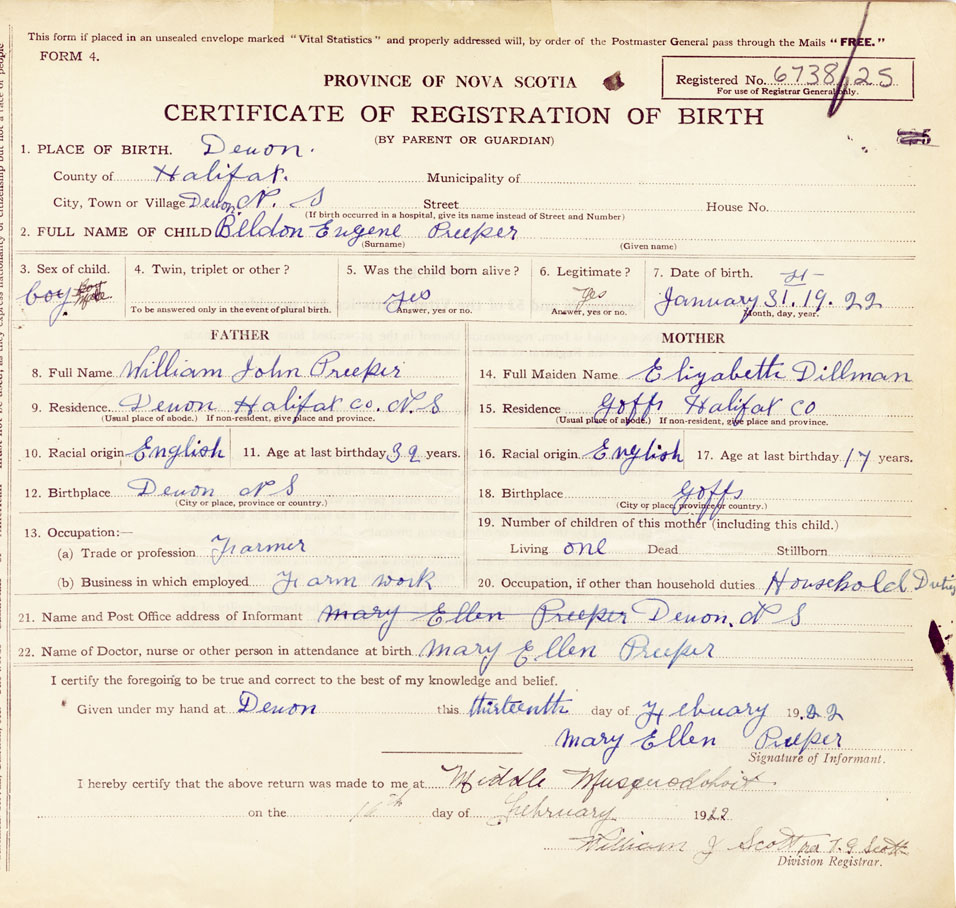 This form if placed in an unsealed envelope marked "Vital Statistics" and properly addressed will, by order of the Postmaster General pass through the Mails "FREE."
FORM 4.
PROVINCE OF NOVA SCOTIA
Registered No. 6738/25
For use of Registrar General only.
CERTIFICATE OF REGISTRATION OF BIRTH
(BY PARENT OR GUARDIAN)
1. PLACE OF BIRTH. Devon.
County of Halifax. Municipality of
City, Town or Village Devon N. S Street House No.
(If birth occurred in a hospital, give its name instead of Street and Number)
2. FULL NAME OF CHILD Beldon Eugene Preeper
(Surname) (Given name)
3. Sex of child. 4. Twin, triplet or other? 5. Was the child born alive? 6. Legitimate? 7. Date of birth.
boy Male yes yes January 31st 19 22
To be answered only in the event of plural birth. Answer, yes or no. Answer, yes or no. Month, day, year.
FATHER MOTHER
8. Full Name William John Preeper 14. Full Maiden Name Elizabeth Dillman
9. Residence Devon Halifax Co. N. S 15. Residence Goffs Halifax Co
(Usual place of abode.) If non-resident, give place and province. (Usual place of abode.) If non-resident, give place and province.
10. Racial origin English 11. Age at last birthday 32 years. 16. Racial origin English 17. Age at last birthday 17 years.
12. Birthplace Devon N S 18. Birthplace Goffs
(City or place, province or country.) (City or place, province or country.)
13. Occupation:— 19. Number of children of this mother (including this child.)
(a) Trade or profession Farmer Living one Dead Stillborn
(b) Business in which employed Farm work 20. Occupation, if other than household duties Household Duties
21. Name and Post Office address of Informant Mary Ellen Preeper Devon. N S
22. Name of Doctor, nurse or other person in attendance at birth. Mary Ellen Preeper
I certify the foregoing to be true and correct to the best of my knowledge and belief.
Given under my hand at Devon this thirteenth day of Febuary 1922
Mary Ellen Preeper
Signature of Informant.
I hereby certify that the above return was made to me at Middle Musquodoboit
on the day of February 1922
William J Scott per T. G Scott
Division Registrar.